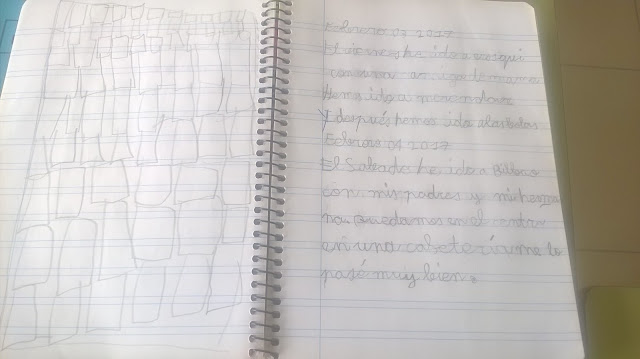 Febrero 03 2017
El viernes he ido a
con una amiga de mamá
Hemos ido a
Y después hemos ido a las bolas
Febrero 04 2017
El Sabado he ido a Bilbao
con mis padres y mi herma
na quedamos en el centro
en una cafetería me lo
pasé muy bien.